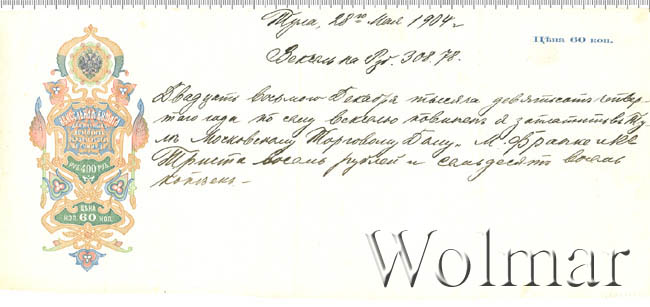 Тула, 28го Мая 1904 г.
Цѣна 60 коп.
Вексель на Руб. 308.78.
Двадцать восьмого Декабря тысяча девятьсот четвер
таго года по сему векселю повинен я заплатить в Ту
лѣ Московскому Торговому Дому „М. Франк и Ко
Триста восемь рублей и семьдесят восемь
копѣек
ВЕКСЕЛЬНАЯ БУМАГА
400 РУБ.
ЦѢНА
60 КОП.
Wolmar